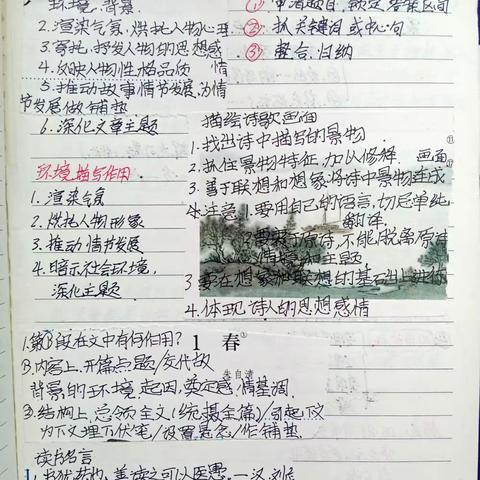 环境、背景
2. 渲染气氛,烘托人物心理
3. 寄托、抒发人物的思想感情
4. 反映人物性格品质
5. 推动故事情节发展,为情节发展做铺垫
6. 深化文章主题
环境描写作用
1. 渲染气氛
2. 烘托人物形象
3. 推动情节发展
4. 暗示社会环境,
深化主题
① 审清题目,锁定答案区间
② 抓关键词或中心句
③ 整合、归纳
描绘诗歌画面
1. 找出诗中描写的景物
2. 抓住景物特征,加以修辞
3. 善于联想和想象将诗中景物连成画面
4. 注意:1. 要用自己的语言,切忌单纯
翻译
2. 要忠于原诗,不能脱离原诗
情境和主题
3 要在想象和联想的基础上进行
4. 体现诗人的思想感情
1 春①
朱自清
1. 第B段在文中有何作用?
B. 内容上,开篇点题/交代故
背景的环境,起因,奠定感情基调
③ 结构上,总领全文(统摄全篇)/勾起下
为下文埋下伏笔/设置悬念/作铺垫
读书名言
1. 书犹药也,善读之可以医愚。—汉·刘向